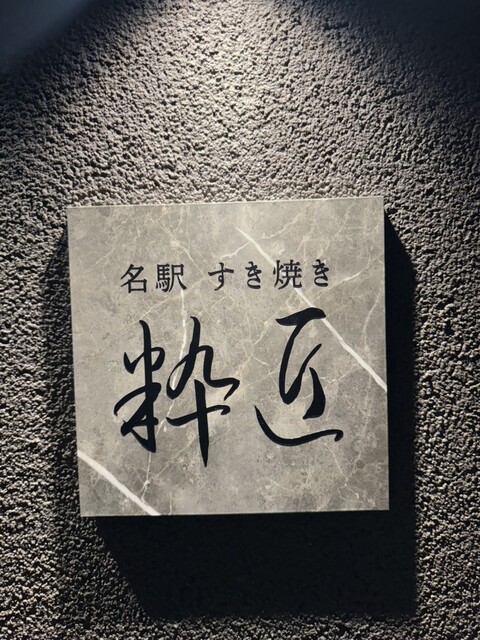 名駅 すき焼き
粋匠